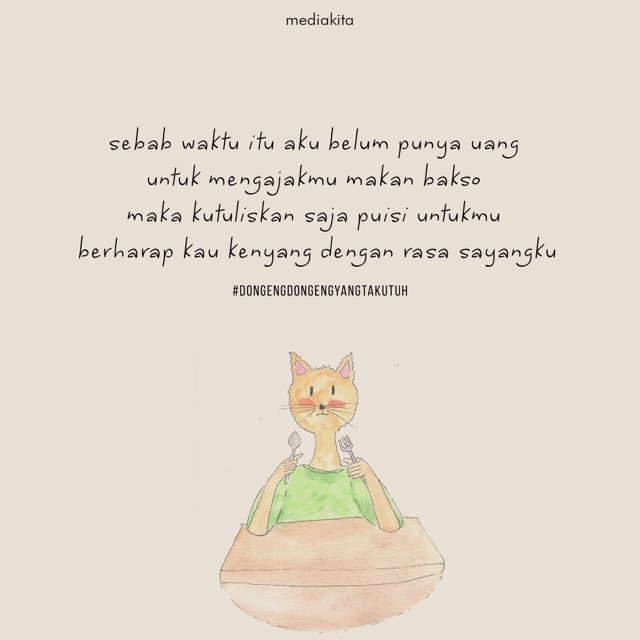 mediakita
sebab waktu itu aku belum punya uang
untuk mengajakmu makan bakso
maka kutuliskan saja puisi untukmu
berharap kau kenyang dengan rasa sayangku
#DONGENGDONGENGYANGTAKUTUH